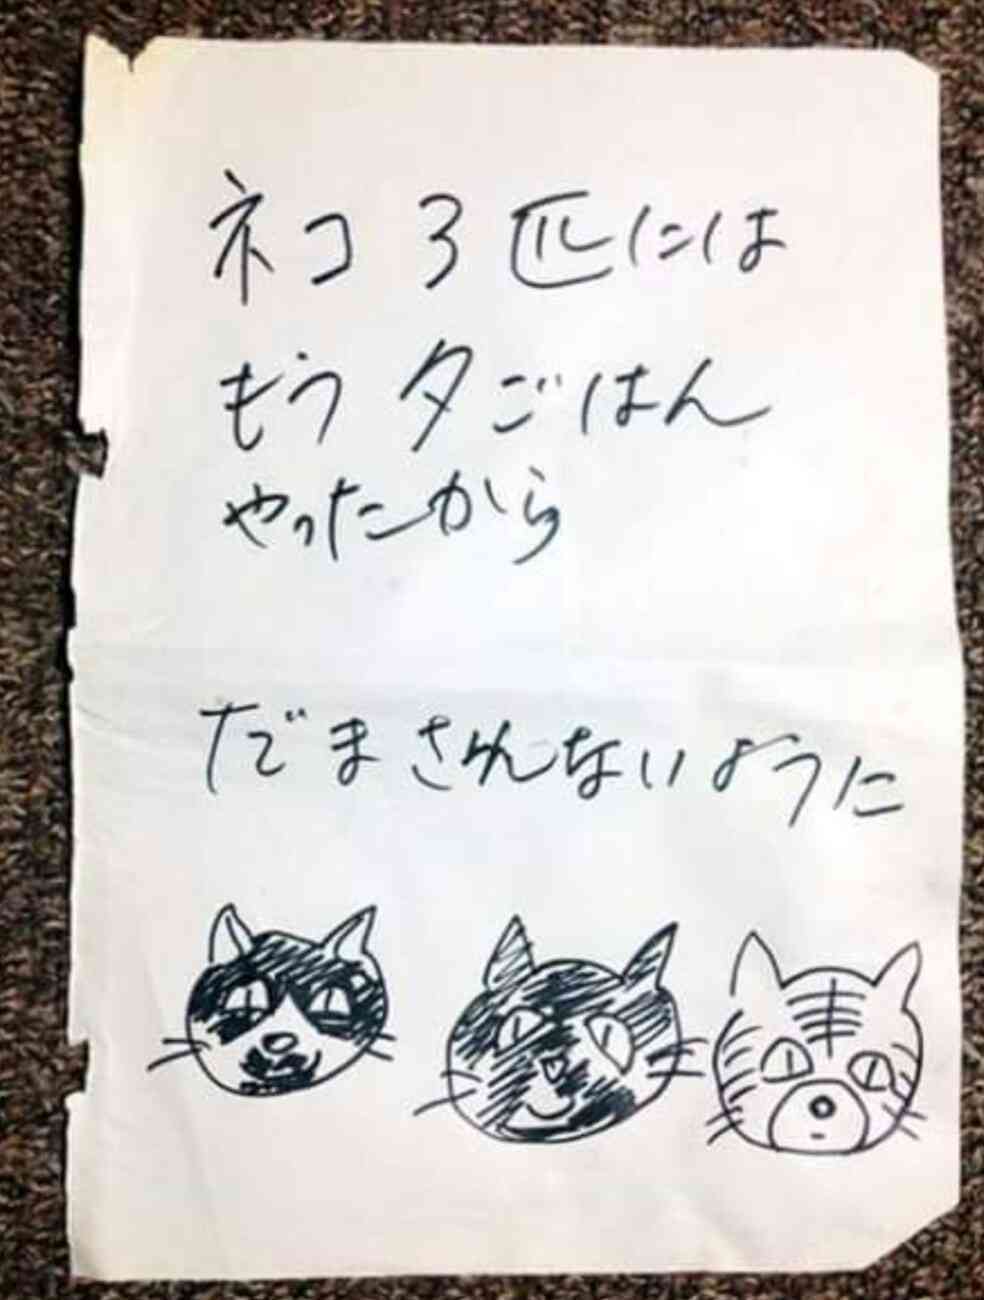 ネコ 3匹には
もう 夕ごはん
やったから
だまされんないように